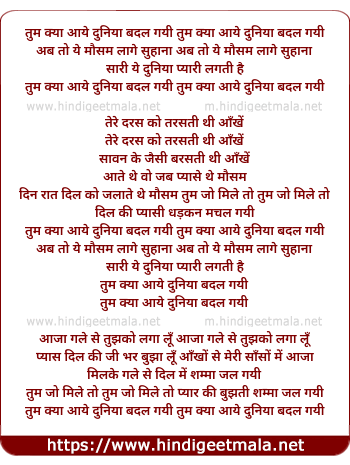 तुम क्या आये दुनिया बदल गयी तुम क्या आये दुनिया बदल गयी
अब तो ये मौसम लागे सुहाना अब तो ये मौसम लागे सुहाना
सारी ये दुनिया प्यारी लगती है
तुम क्या आये दुनिया बदल गयी तुम क्या आये दुनिया बदल गयी
www.hindigeetmala.net m.hindigeetmala.net
तेरे दरस को तरसती थी आँखें
तेरे दरस को तरसती थी आँखें
सावन के जैसी बरसती थी आँखें
आते थे वो जब प्यासे थे मौसम
दिन रात दिल को जलाते थे मौसम तुम जो मिले तो तुम जो मिले तो
दिल की प्यासी धड़कन मचल गयी
तुम क्या आये दुनिया बदल गयी तुम क्या आये दुनिया बदल गयी
अब तो ये मौसम लागे सुहाना अब तो ये मौसम लागे सुहाना
सारी ये दुनिया प्यारी लगती है
तुम क्या आये दुनिया बदल गयी
तुम क्या आये दुनिया बदल गयी
www.hindigeetmala.net m.hindigeetmala.net
आजा गले से तुझको लगा लूँ आजा गले से तुझको लगा लूँ
प्यास दिल की जी भर बुझा लूँ आँखों से मेरी साँसों में आजा
मिलके गले से दिल में शम्मा जल गयी
तुम जो मिले तो तुम जो मिले तो प्यार की बुझती शम्मा जल गयी
तुम क्या आये दुनिया बदल गयी तुम क्या आये दुनिया बदल गयी
https://www.hindigeetmala.net